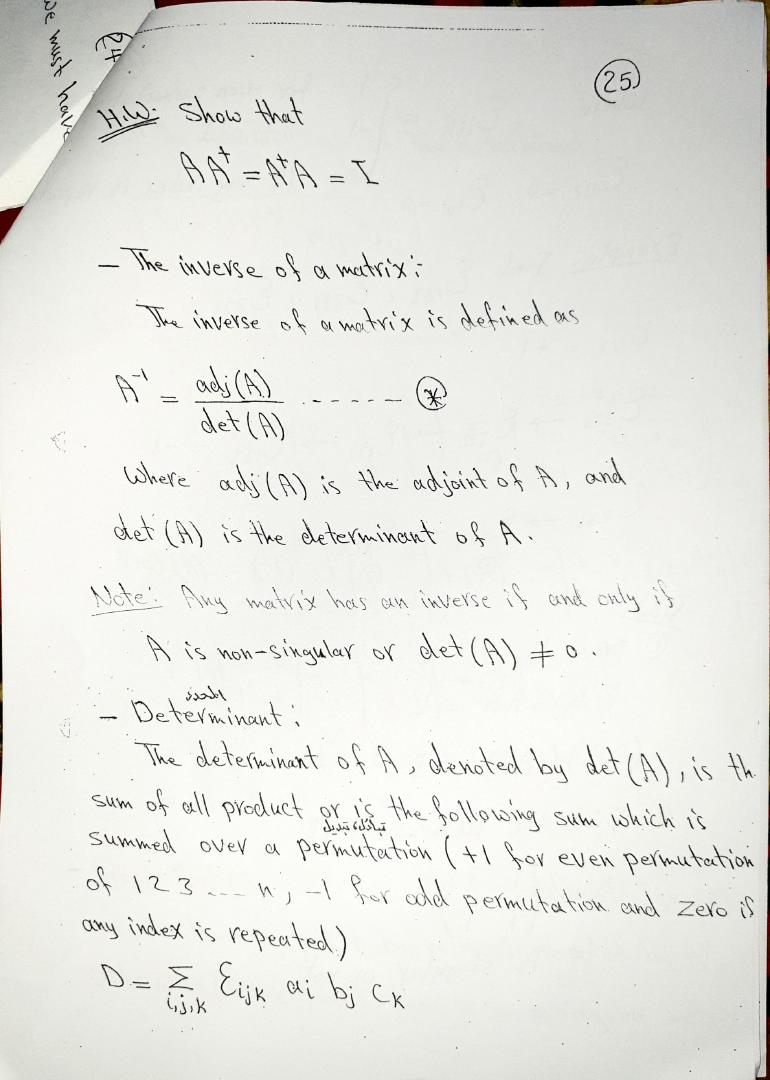 we must have
24
25
H.W: Show that
AA⁺ = A⁺A = I
– The inverse of a matrix:-
The inverse of a matrix is defined as
A⁻¹ = adj(A) / det(A) ------ *
where adj(A) is the adjoint of A, and
det(A) is the determinant of A.
Note: Any matrix has an inverse if and only if
A is non-singular or det(A) ≠ 0.
المحدد
– Determinant:
The determinant of A, denoted by det(A), is th
sum of all product or is the following sum which is
تبادل، تبديل
summed over a permutation (+1 for even permutation
of 1 2 3 --- n, -1 for odd permutation and zero if
any index is repeated)
D = Σ i,j,k Ɛijk ai bj Ck